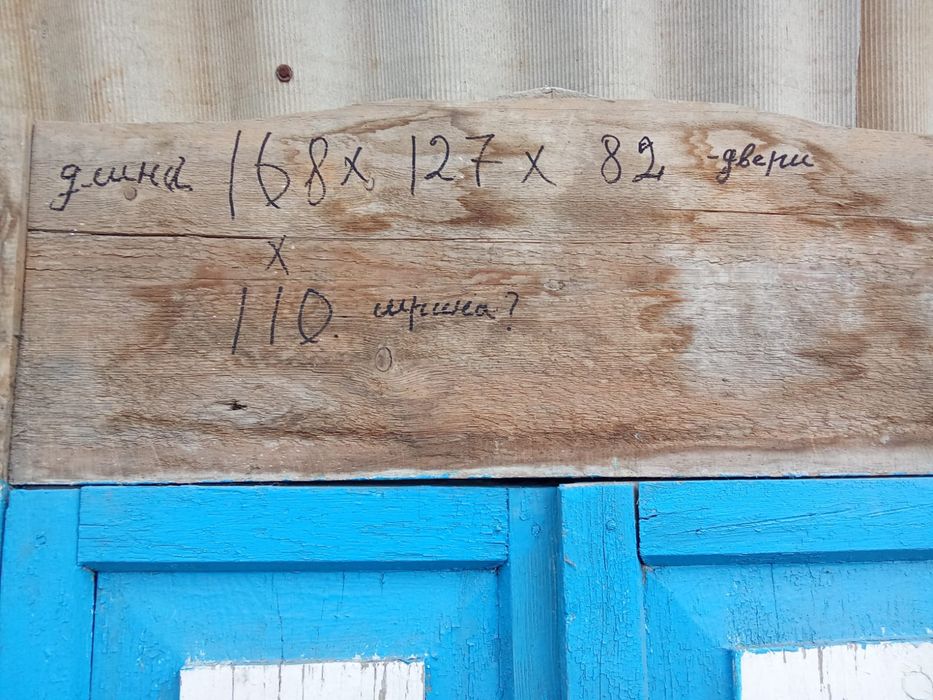 длина 168 х 127 х 82 -двери
х
110. ширина?